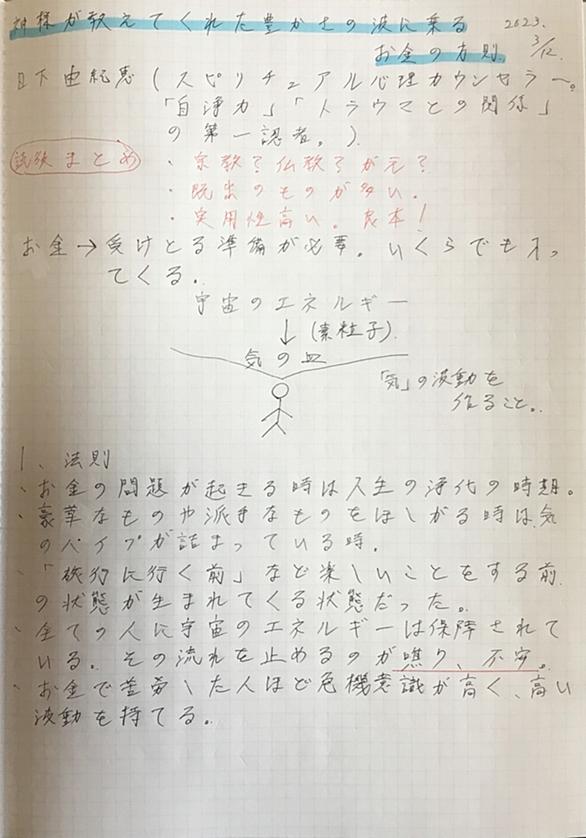 神様が教えてくれた豊かさの波に乗る
2023. 3/12.
お金の方則.
日下由紀恵(スピリチュアル心理カウンセラー。
「自浄力」「トラウマとの関係」
の第一認者。)
読後まとめ
・宗教?仏教?が元?
・既出のものが多い.
・実用性高い。良本!
お金→受けとる準備が必要。いくらでも入っ
てくる.
宇宙のエネルギー
↓(素粒子).
気の皿
「気」の波動を
作ること。
1、法則
・お金の問題が起きる時は人生の浄化の時期。
・豪華なものや派手なものをほしがる時は気
のパイプが詰まっている時.
・「旅行に行く前」など楽しいことをする前.
の状態が生まれてくる状態だった。
・全ての人に宇宙のエネルギーは保障されて
いる。その流れを止めるのが焦り、不安。
・お金で苦労した人ほど危機意識が高く、高い
波動を持てる。